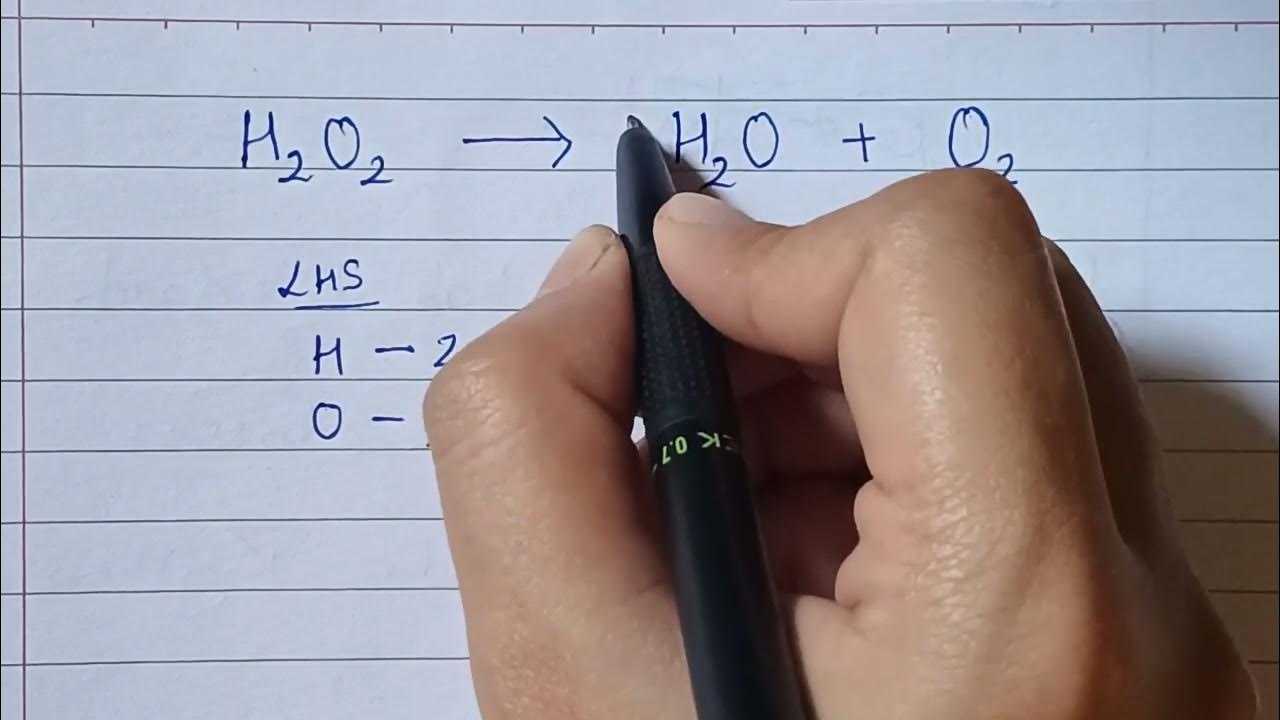 H₂O₂ → H₂O + O₂
LHS
H - 2
O -
CK 0.7